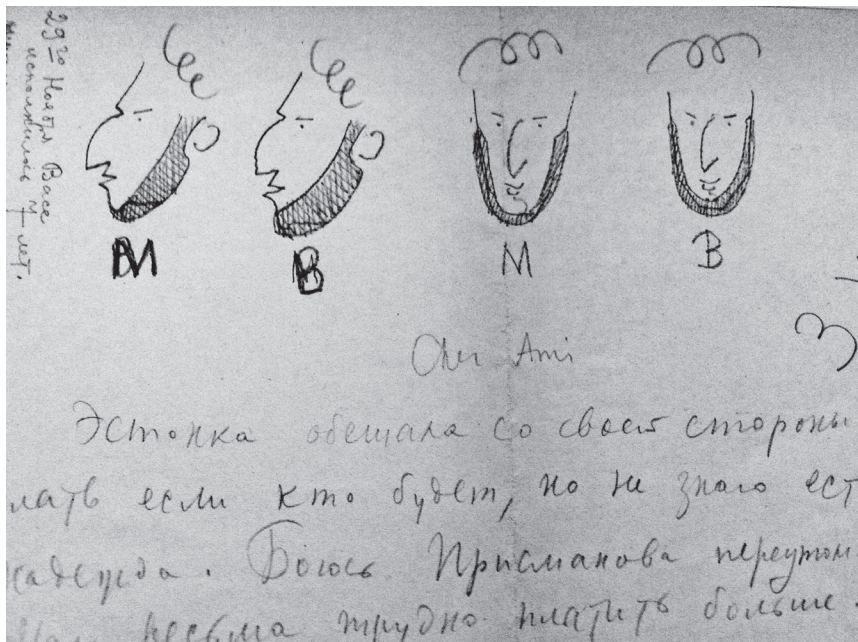 29го Ноября Васе
исполнилось 7 лет.
М В М В
Cher Ami
Эстонка обещала со своей стороны
лать если кто будет, но не знаю ест
надежда. Боюсь Присманова переутом
весьма трудно платить больше.